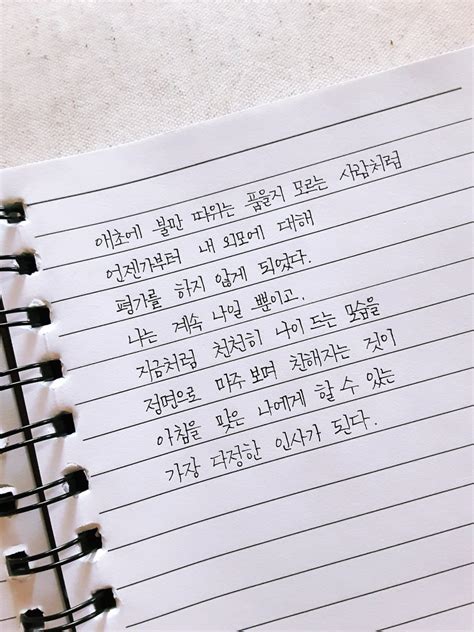 애초에 불만 따위는 품을지 모르는 사람처럼
언젠가부터 내 외모에 대해
평가를 하지 않게 되었다.
나는 계속 나일 뿐이고,
지금처럼 천천히 나이 드는 모습을
정면으로 마주 보며 친해지는 것이
아침을 맞은 나에게 할 수 있는
가장 다정한 인사가 된다.